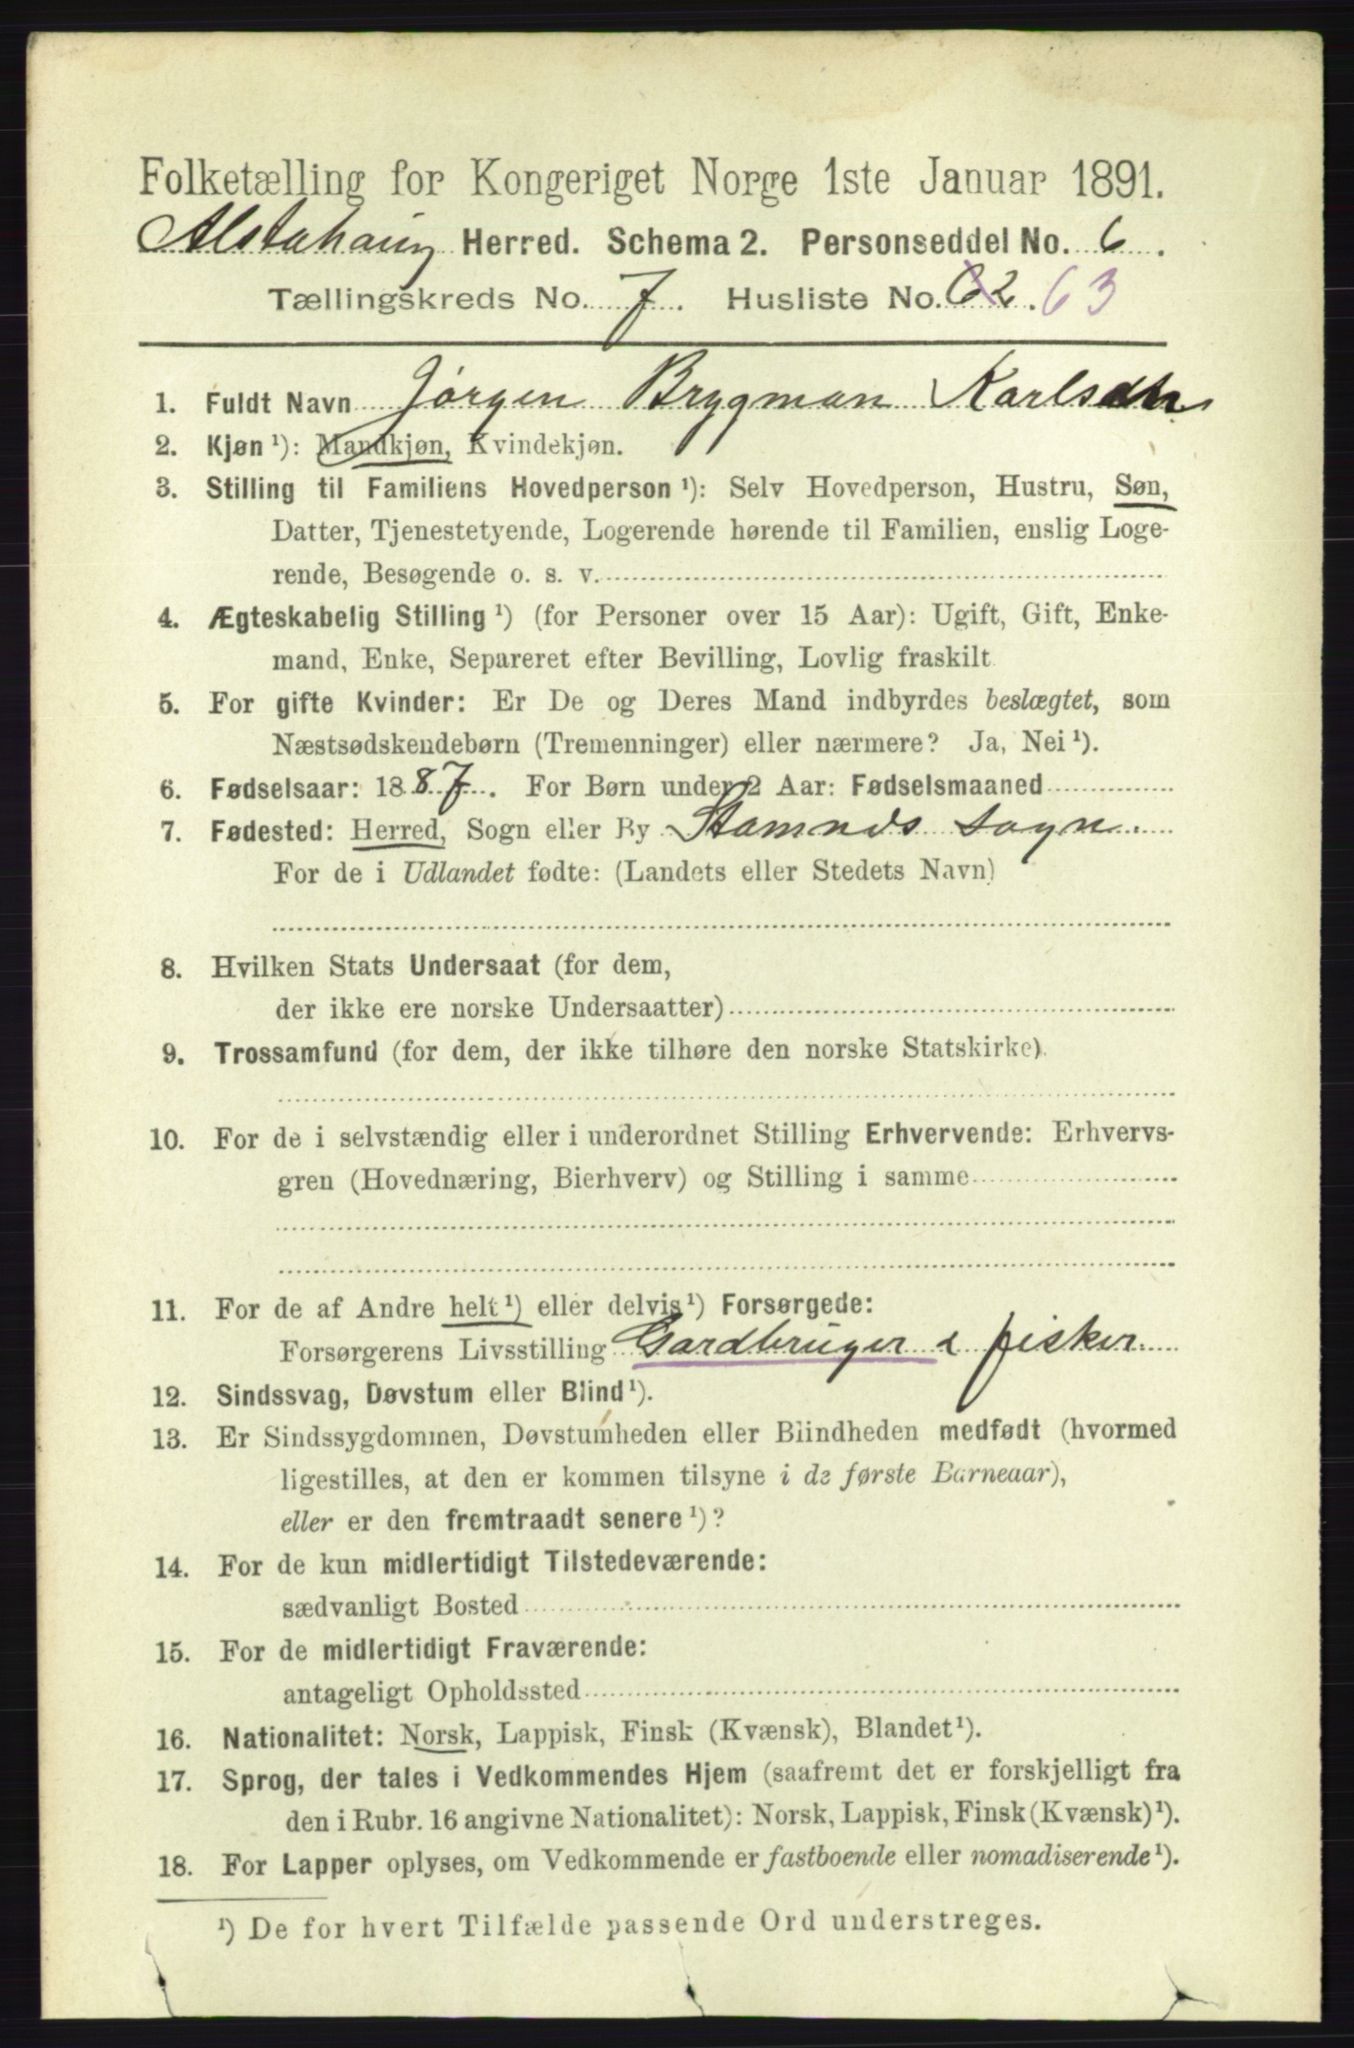 Folketælling for Kongeriget Norge 1ste Januar 1891.
Alstahaug Herred. Schema 2. Personseddel No. 6.
Tællingskreds No. 7. Husliste No. 62. 63
1. Fuldt Navn Jørgen Brygman
2. Kjøn ¹): Mandkjøn, Kvindekjøn.
3. Stilling til Familiens Hovedperson ¹): Selv Hovedperson, Hustru, Søn,
Datter, Tjenestetyende, Logerende hørende til Familien, enslig Loge-
rende, Besøgende o. s. v.
4. Ægteskabelig Stilling ¹) (for Personer over 15 Aar): Ugift, Gift, Enke-
mand, Enke, Separeret efter Bevilling, Lovlig fraskilt
5. For gifte Kvinder: Er De og Deres Mand indbyrdes beslægtet, som
Næstsødskendebørn (Tremenninger) eller nærmere? Ja, Nei ¹).
6. Fødselsaar: 1887. For Børn under 2 Aar: Fødselsmaaned
7. Fødested: Herred, Sogn eller By Stamnes sogn.
For de i Udlandet fødte: (Landets eller Stedets Navn)
8. Hvilken Stats Undersaat (for dem,
der ikke ere norske Undersaatter)
9. Trossamfund (for dem, der ikke tilhøre den norske Statskirke).
10. For de i selvstændig eller i underordnet Stilling Erhvervende: Erhvervs-
gren (Hovednæring, Bierhverv) og Stilling i samme
11. For de af Andre helt ¹) eller delvis ¹) Forsørgede:
Forsørgerens Livsstilling Gardbruger & fisker.
12. Sindssvag, Døvstum eller Blind ¹).
13. Er Sindssygdommen, Døvstumheden eller Blindheden medfødt (hvormed
ligestilles, at den er kommen tilsyne i de første Barneaar),
eller er den fremtraadt senere ¹)?
14. For de kun midlertidigt Tilstedeværende:
sædvanligt Bosted
15. For de midlertidigt Fraværende:
antageligt Opholdssted
16. Nationalitet: Norsk, Lappisk, Finsk (Kvænsk), Blandet ¹).
17. Sprog, der tales i Vedkommendes Hjem (saafremt det er forskjelligt fra
den i Rubr. 16 angivne Nationalitet): Norsk, Lappisk, Finsk (Kvænsk) ¹).
18. For Lapper oplyses, om Vedkommende er fastboende eller nomadiserende ¹).
¹) De for hvert Tilfælde passende Ord understreges.